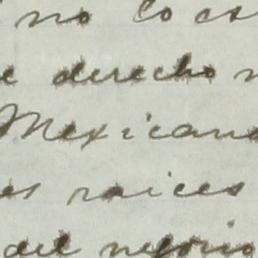 no lo es
e derecho
Mexicano
es raices
del negocio